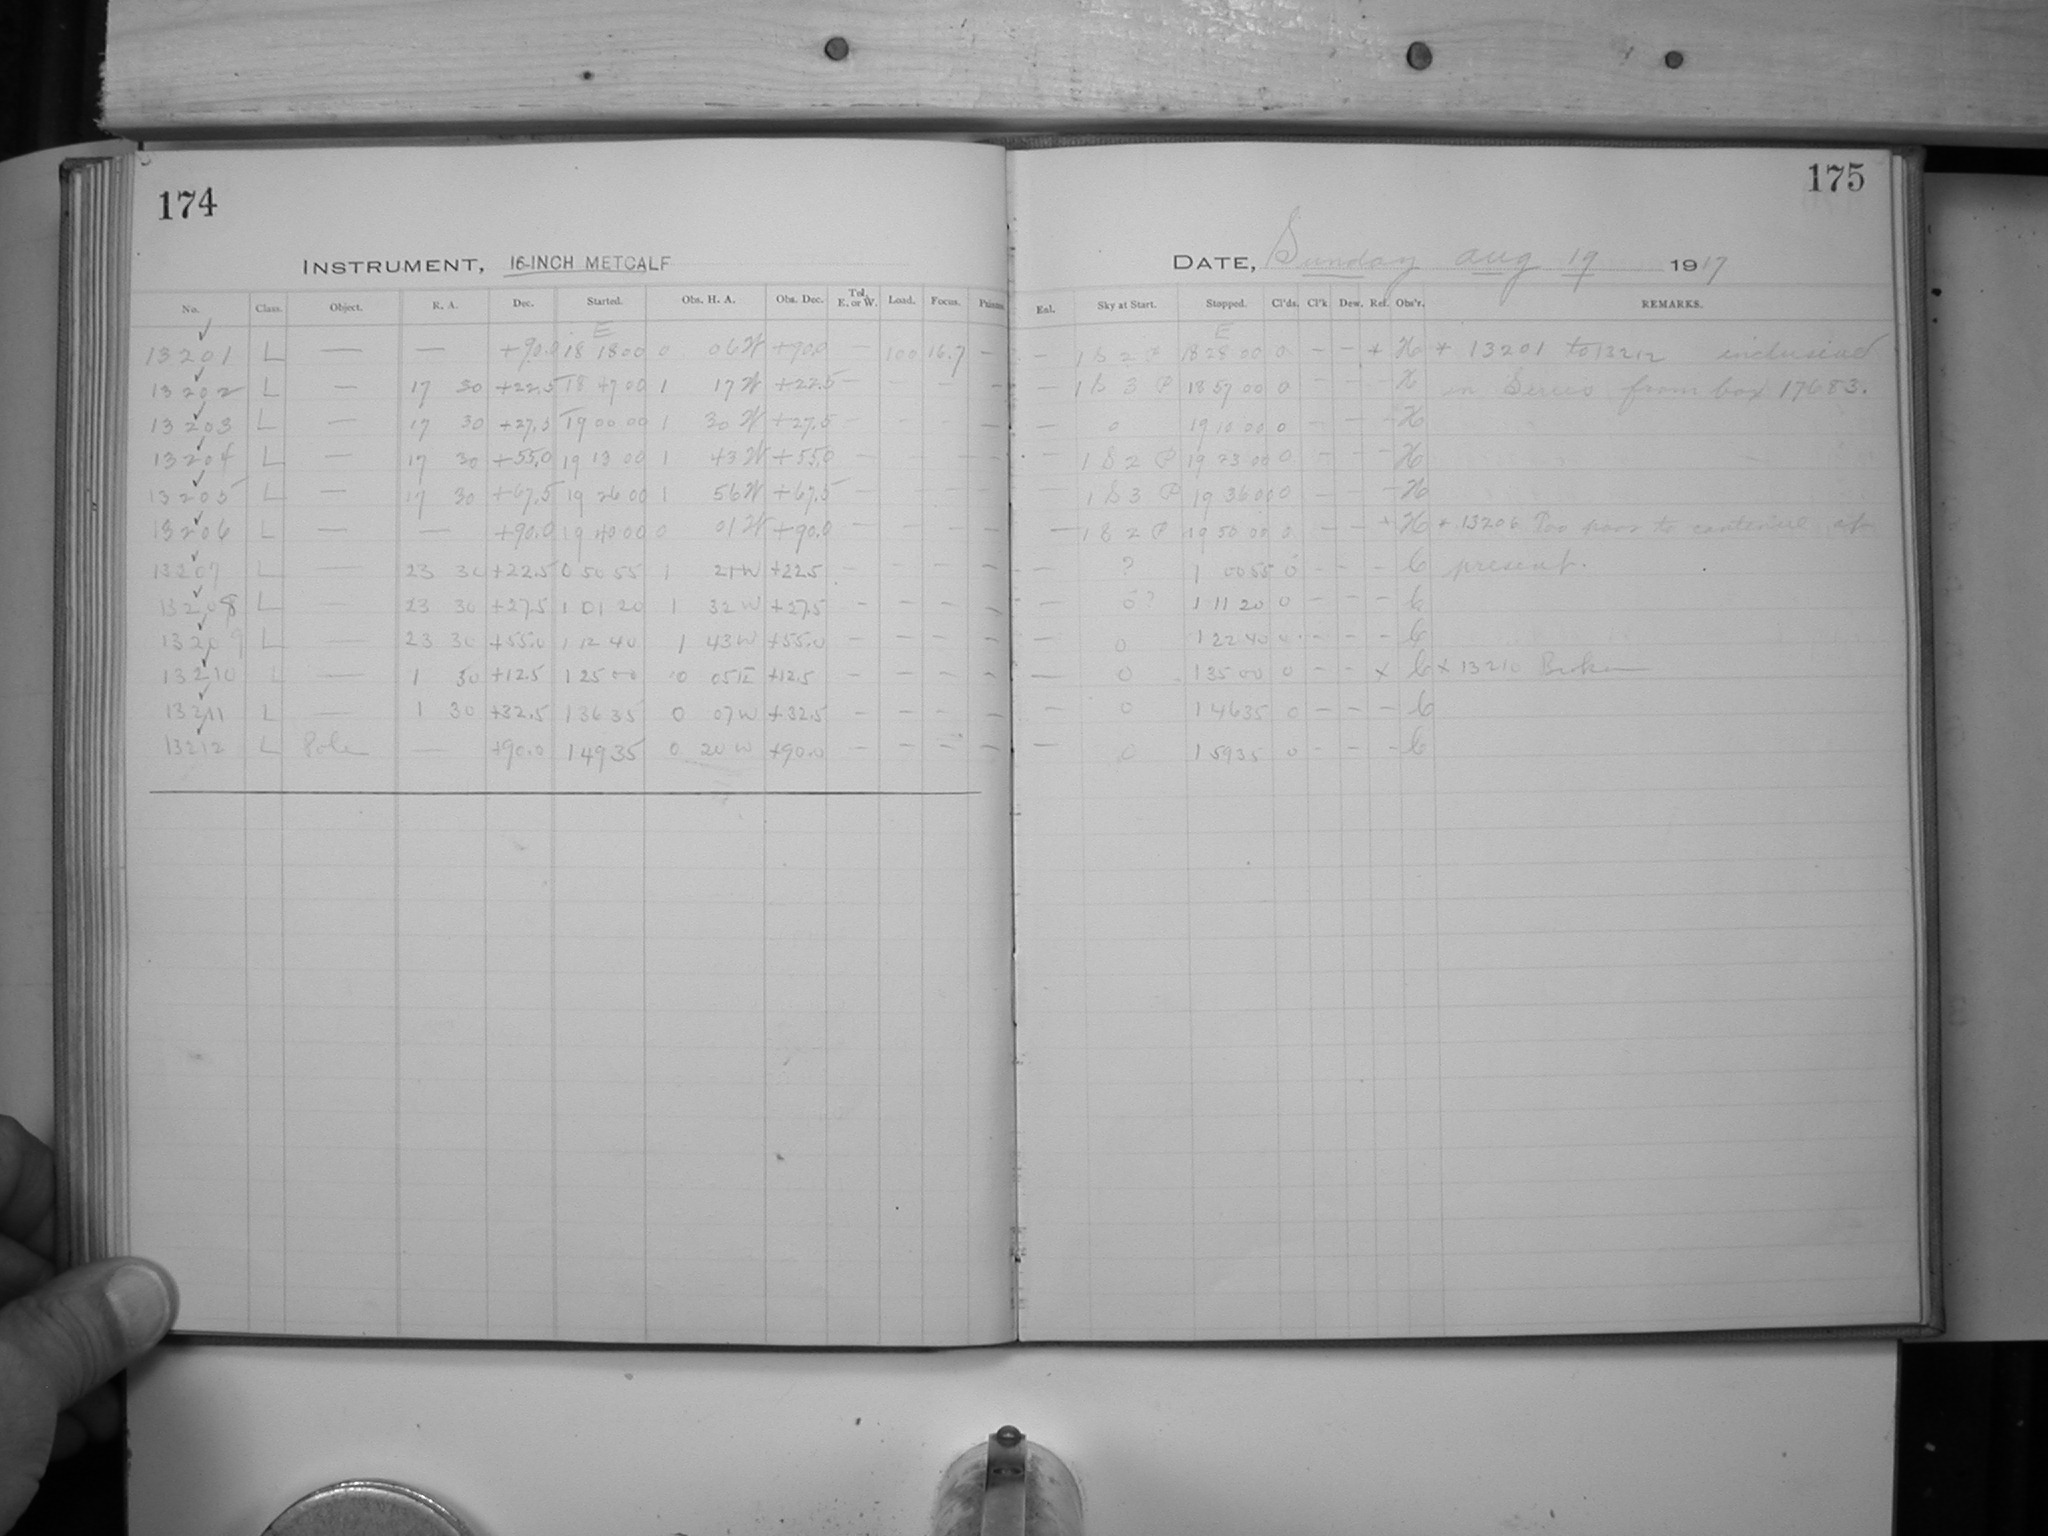 174
175
INSTRUMENT, 16-INCH METCALF
DATE, Sunday Aug 19 1917
No. Class. Object. R. A. Dec. Started. Obs. H. A. Obs. Dec. Tel. E. or W. Load. Focus. Prisms. Enl. Sky at Start. Stopped. Cl'ds. Cl'k Dew. Ref. Obs'r. REMARKS.
E E
13201 L — — +90.0 18 18 00 0 06 W +90.0 — 100 16.7 — — 1 S 2 P 18 28 00 0 — — * H * 13201 to 13212 inclusive
13202 L — 17 30 +22.5 18 47 00 1 17 W +22.5 — — — — — 1 S 3 P 18 57 00 0 — — — H in Series from box 17683.
13203 L — 17 30 +27.5 19 00 00 1 30 W +27.5 — — — — — 0 19 10 00 0 — — — H
13204 L — 17 30 +55.0 19 13 00 1 43 W +55.0 — — — — — 1 S 2 P 19 23 00 0 — — — H
13205 L — 17 30 +67.5 19 26 00 1 56 W +67.5 — — — — — 1 S 3 P 19 36 00 0 — — — H
13206 L — — +90.0 19 40 00 0 01 W +90.0 — — — — — 1 S 2 P 19 50 00 0 — — * H * 13206 Too poor to continue at
13207 L — 23 30 +22.5 0 50 55 1 21 W +22.5 — — — — — ? 1 00 55 0 — — — C present.
13208 L — 23 30 +27.5 1 01 20 1 32 W +27.5 — — — — — 0? 1 11 20 0 — — — C
13209 L — 23 30 +55.0 1 12 40 1 43 W +55.0 — — — — — 0 1 22 40 0 — — — C
13210 L — 1 30 +12.5 1 25 00 0 05 E +12.5 — — — — — 0 1 35 00 0 — — x C x 13210 Broken
13211 L — 1 30 +32.5 1 36 35 0 07 W +32.5 — — — — — 0 1 46 35 0 — — — C
13212 L Pole — +90.0 1 49 35 0 20 W +90.0 — — — — — 0 1 59 35 0 — — — C